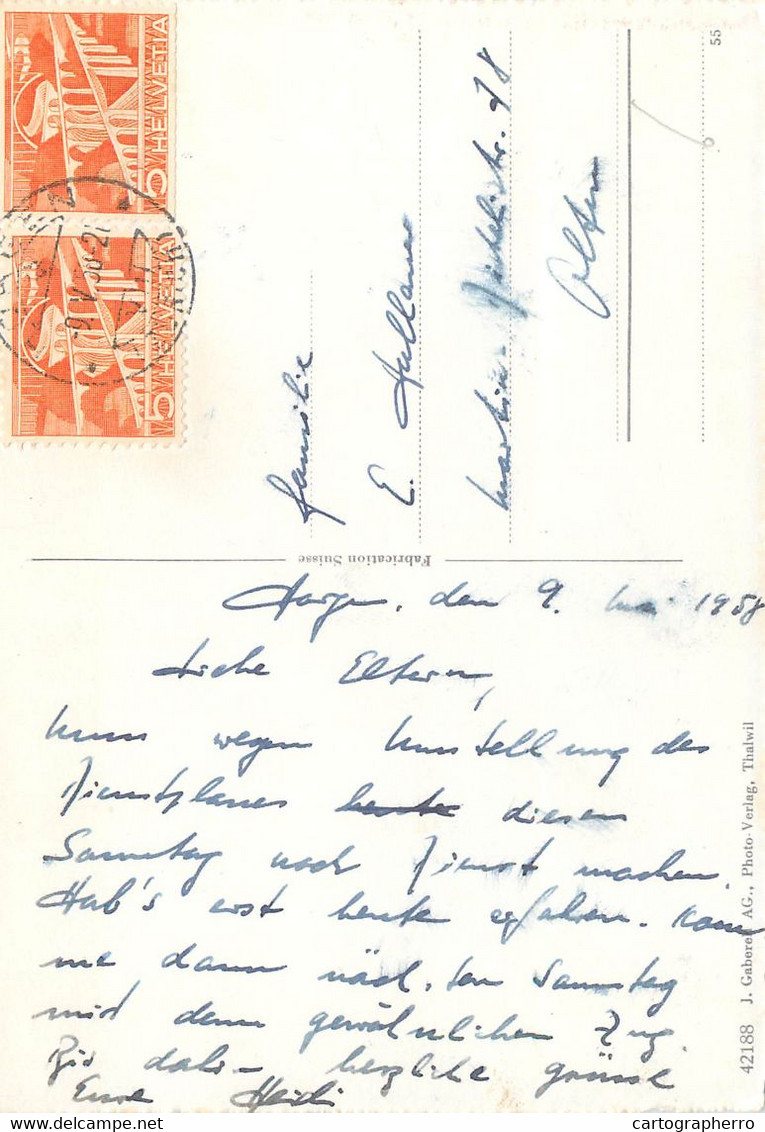 HELVETIA
5
HELVETIA
5
-9.V.58-21
55
Familie
E. Hallauer
Martin-Disteli-Str. 78
Olten
Fabrication Suisse
Horgen, den 9. Mai 1958
Liebe Eltern,
Muss wegen Umstellung des
Dienstplanes heute diesen
Samstag noch Dienst machen.
Hab's erst heute erfahren. Kom
me dann näch.ten Samstag
mit dem gewöhnlichen Zug.
Bis dahin herzliche Grüsse
Eure Heidi
42188 J. Gaberell AG., Photo-Verlag, Thalwil
cartographerro